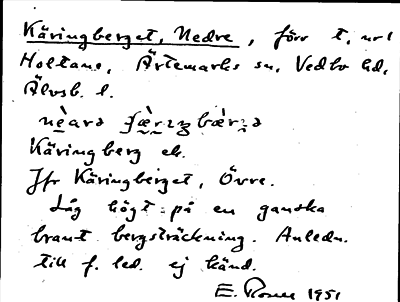 Käringberget, Nedre, förr t. nr 1
Holtane, Ärtemarks sn, Vedbo hd,
Älvsb. l.
Käringberg ek.
Jfr Käringberget, Övre.
Låg högt på en ganska
brant bergsträckning. Anledn.
till f. led. ej känd.
E. 1951